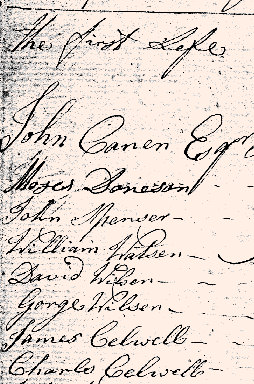 The first Lefe
John Canen Esqr
Moses Doneson
John Spenser
William Watsen
David Wilsen
Gorge Wilsen
James Celwell
Charles Celwell